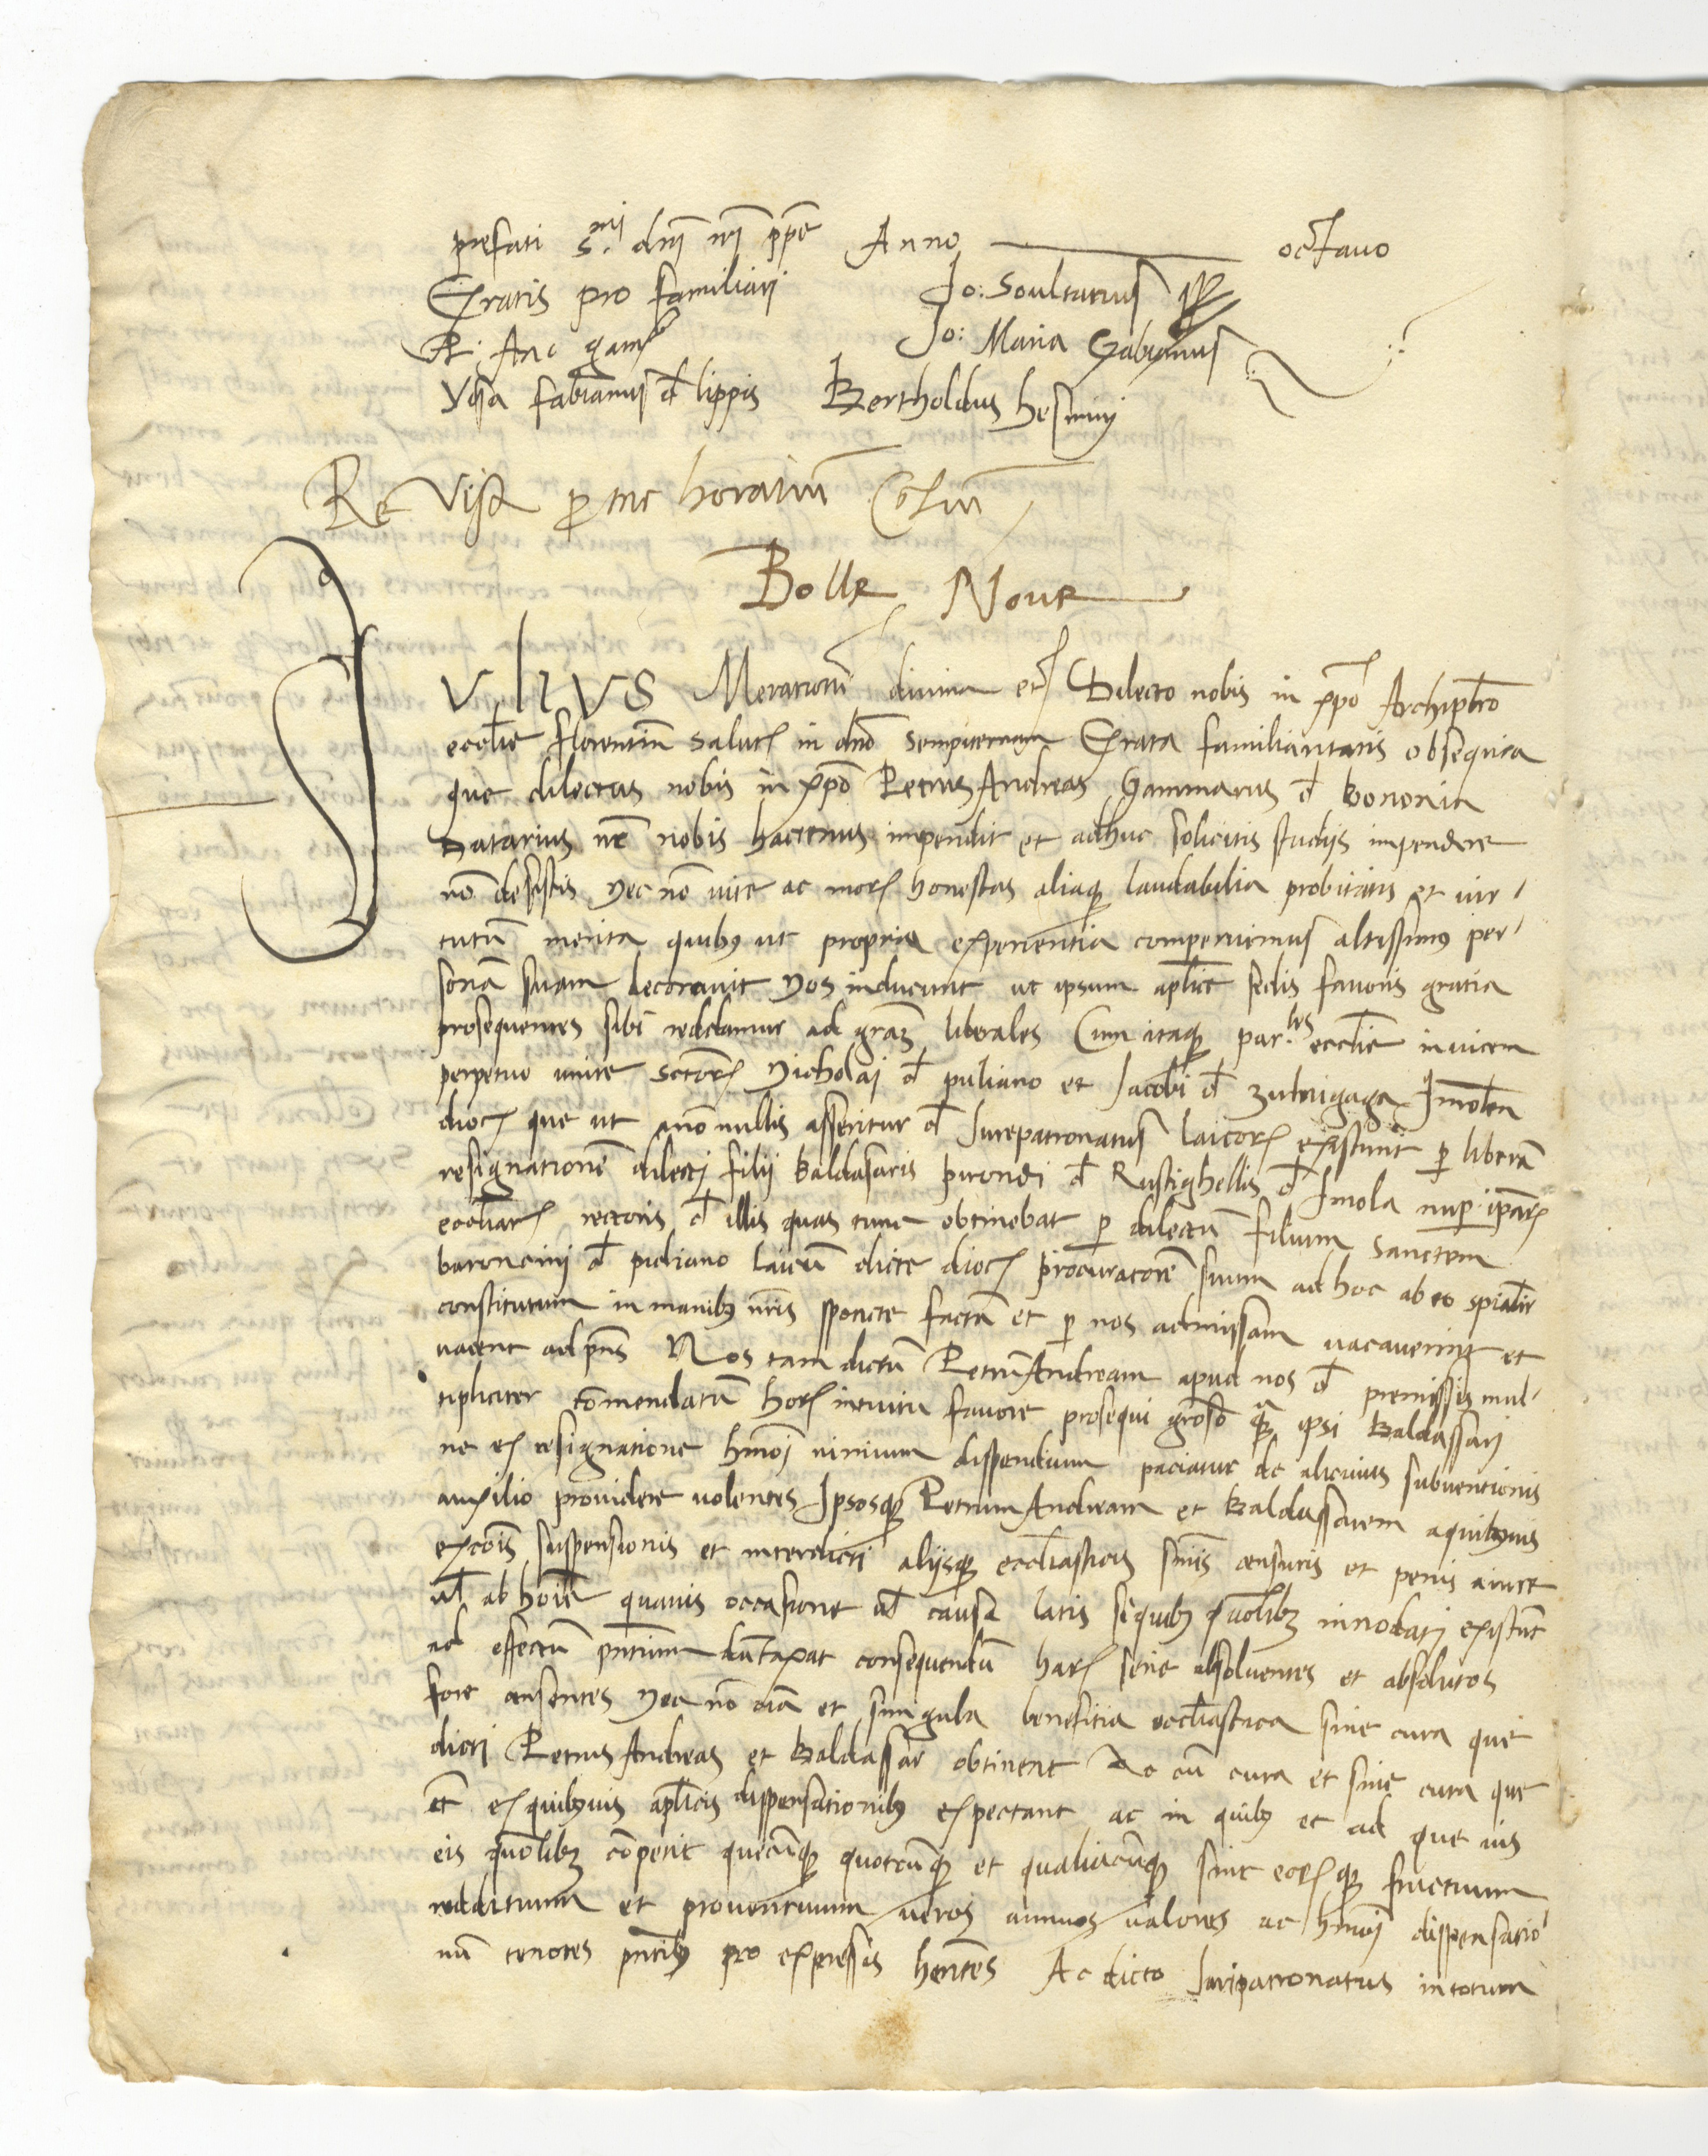 prefati S.mi dnj nrj ppe Anno octauo
Gratis pro familiarj Jo: Soultatus
R: Anc gam Jo: Maria Gabianus
Ydsa fabianus d lippis Bertholdus hesmuij
Re Visa p me horatiũ
Bolle Noue
IULIUS Meratiom diuina etc Dilecto nobis in xpo Archipbro
ecclie florentin salutem in dno sempiternam Grata familiaritatis obsequia
que dilectus nobis in xpo PetrusAndreas Gammarus d bononia
Datarius nr nobis hactenus impendit et adhuc solicitis studijs impendere
nõ desistis Nec nõ uite ac mor honestas aliaque laudabilia probitatis et uir-
tutũ merita quibus ut propria experientia comperuimus altissimus per-
sonã suam decorauit Nos inducunt ut ipsum aplice sedis fauoris gratia
prosequentes sibi reddamur ad gram liberales Cum itaque par.les ecclie inuicem
perpetuo unite sctor Nicholaj d puliano et Jacobi d zubrigaga Imolen
dioc que ut anõnullis asseritur d Jurepatronatus laicor existunt p liberã
resignationẽ dilectj filij baldasaris pirondi d Rustighellis d Imola nup ipar
eccliar rectoris d illis quas tunc obtinebat p dilectũ filium sanctem
baroncinj d puliano laicũ dicte dioc procuratorẽ suum ad hoc ab eo spialr
constitutum in manibus nris sponte factã et p nos admissam uacauerint et
uacent ad pns Nos tam dictũ PetrũAndream apud nos d premissis mul-
tipliciter cõmendatũ hor intuitu fauore prosequi groso q ipsi Baldassarj
ne ex resignatione hmoj nimium dispendium paciatur de alicuius subuentionis
auxilio prouidere uolentes Ipsosque PetrumAndream et Baldassarem aquibusuis
excõis suspensionis et interdicti alijsque eccliasticis sniis censuris et penis aiure
ul ab hoie quauis occasione ul causa latis siquibus quolibz innodatj existunt
ad effectũ pntium dũtaxat consequendũ har serie absoluentes et absolutos
fore censentes Nec nõ oia et singula benefitia eccliastica sine cura que
dicti Petrus Andreas et Baldassar obtinent Ac cũ cura et sine cura que
et ex quibusuis aplicis dispensationibus expectant ac in quibus et ad que ius
eis quolibz cõpetit quecũque quotcũque et qualiacũque sint eorque fructuum
reddituum et prouentuum ueros annuos ualores ac hmoj dispensatio
nũ tenores pntibus pro expressis hentes Ac dicto Juripatronatus intotum